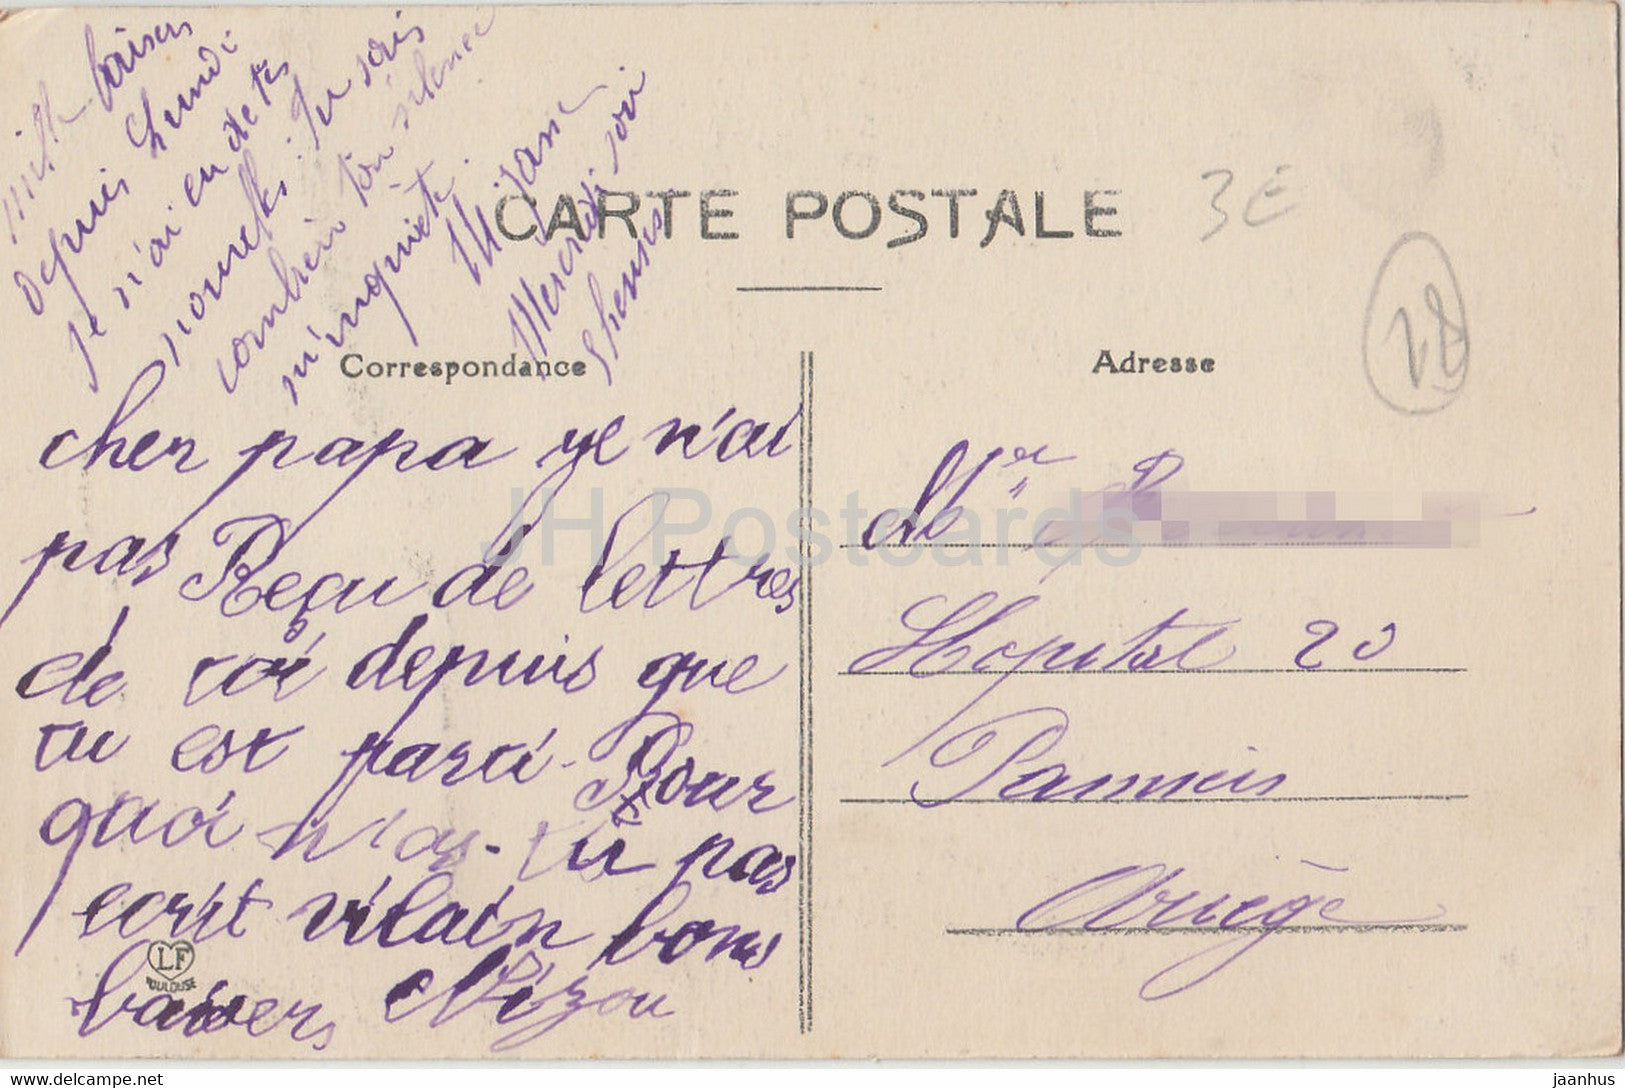 mille baisers
depuis Lundi
je n'ai eu de tes
nouvelles. Tu sais
combien ton silence
m'inquiète.
Mercredi soir
9 heures
CARTE POSTALE
3E
28
Correspondance
Adresse
cher papa je n'ai
pas Reçu de lettres
de toi depuis que
tu est parti - Pour
quoi n'as-tu pas
ecrit vilain bons
baisers Mizou
LF
TOULOUSE
Mr
Hopital 20
Pamiers
Ariège
JH Postcards
delcampe.net
jaanhus